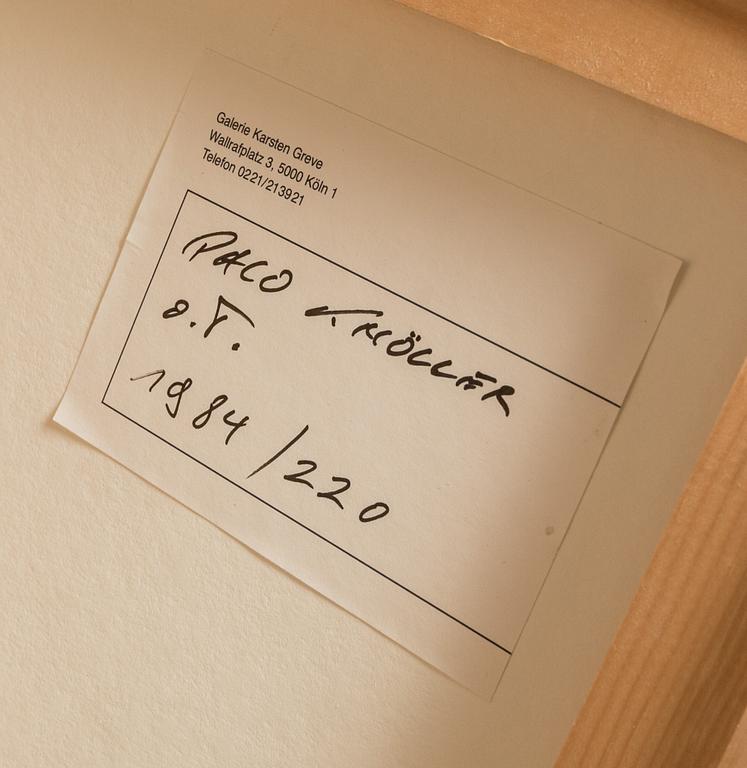 Galerie Karsten Greve
Wallrafplatz 3, 5000 Köln 1
Telefon 0221/213921
PACO KNÖLLER
o.T.
1984/220